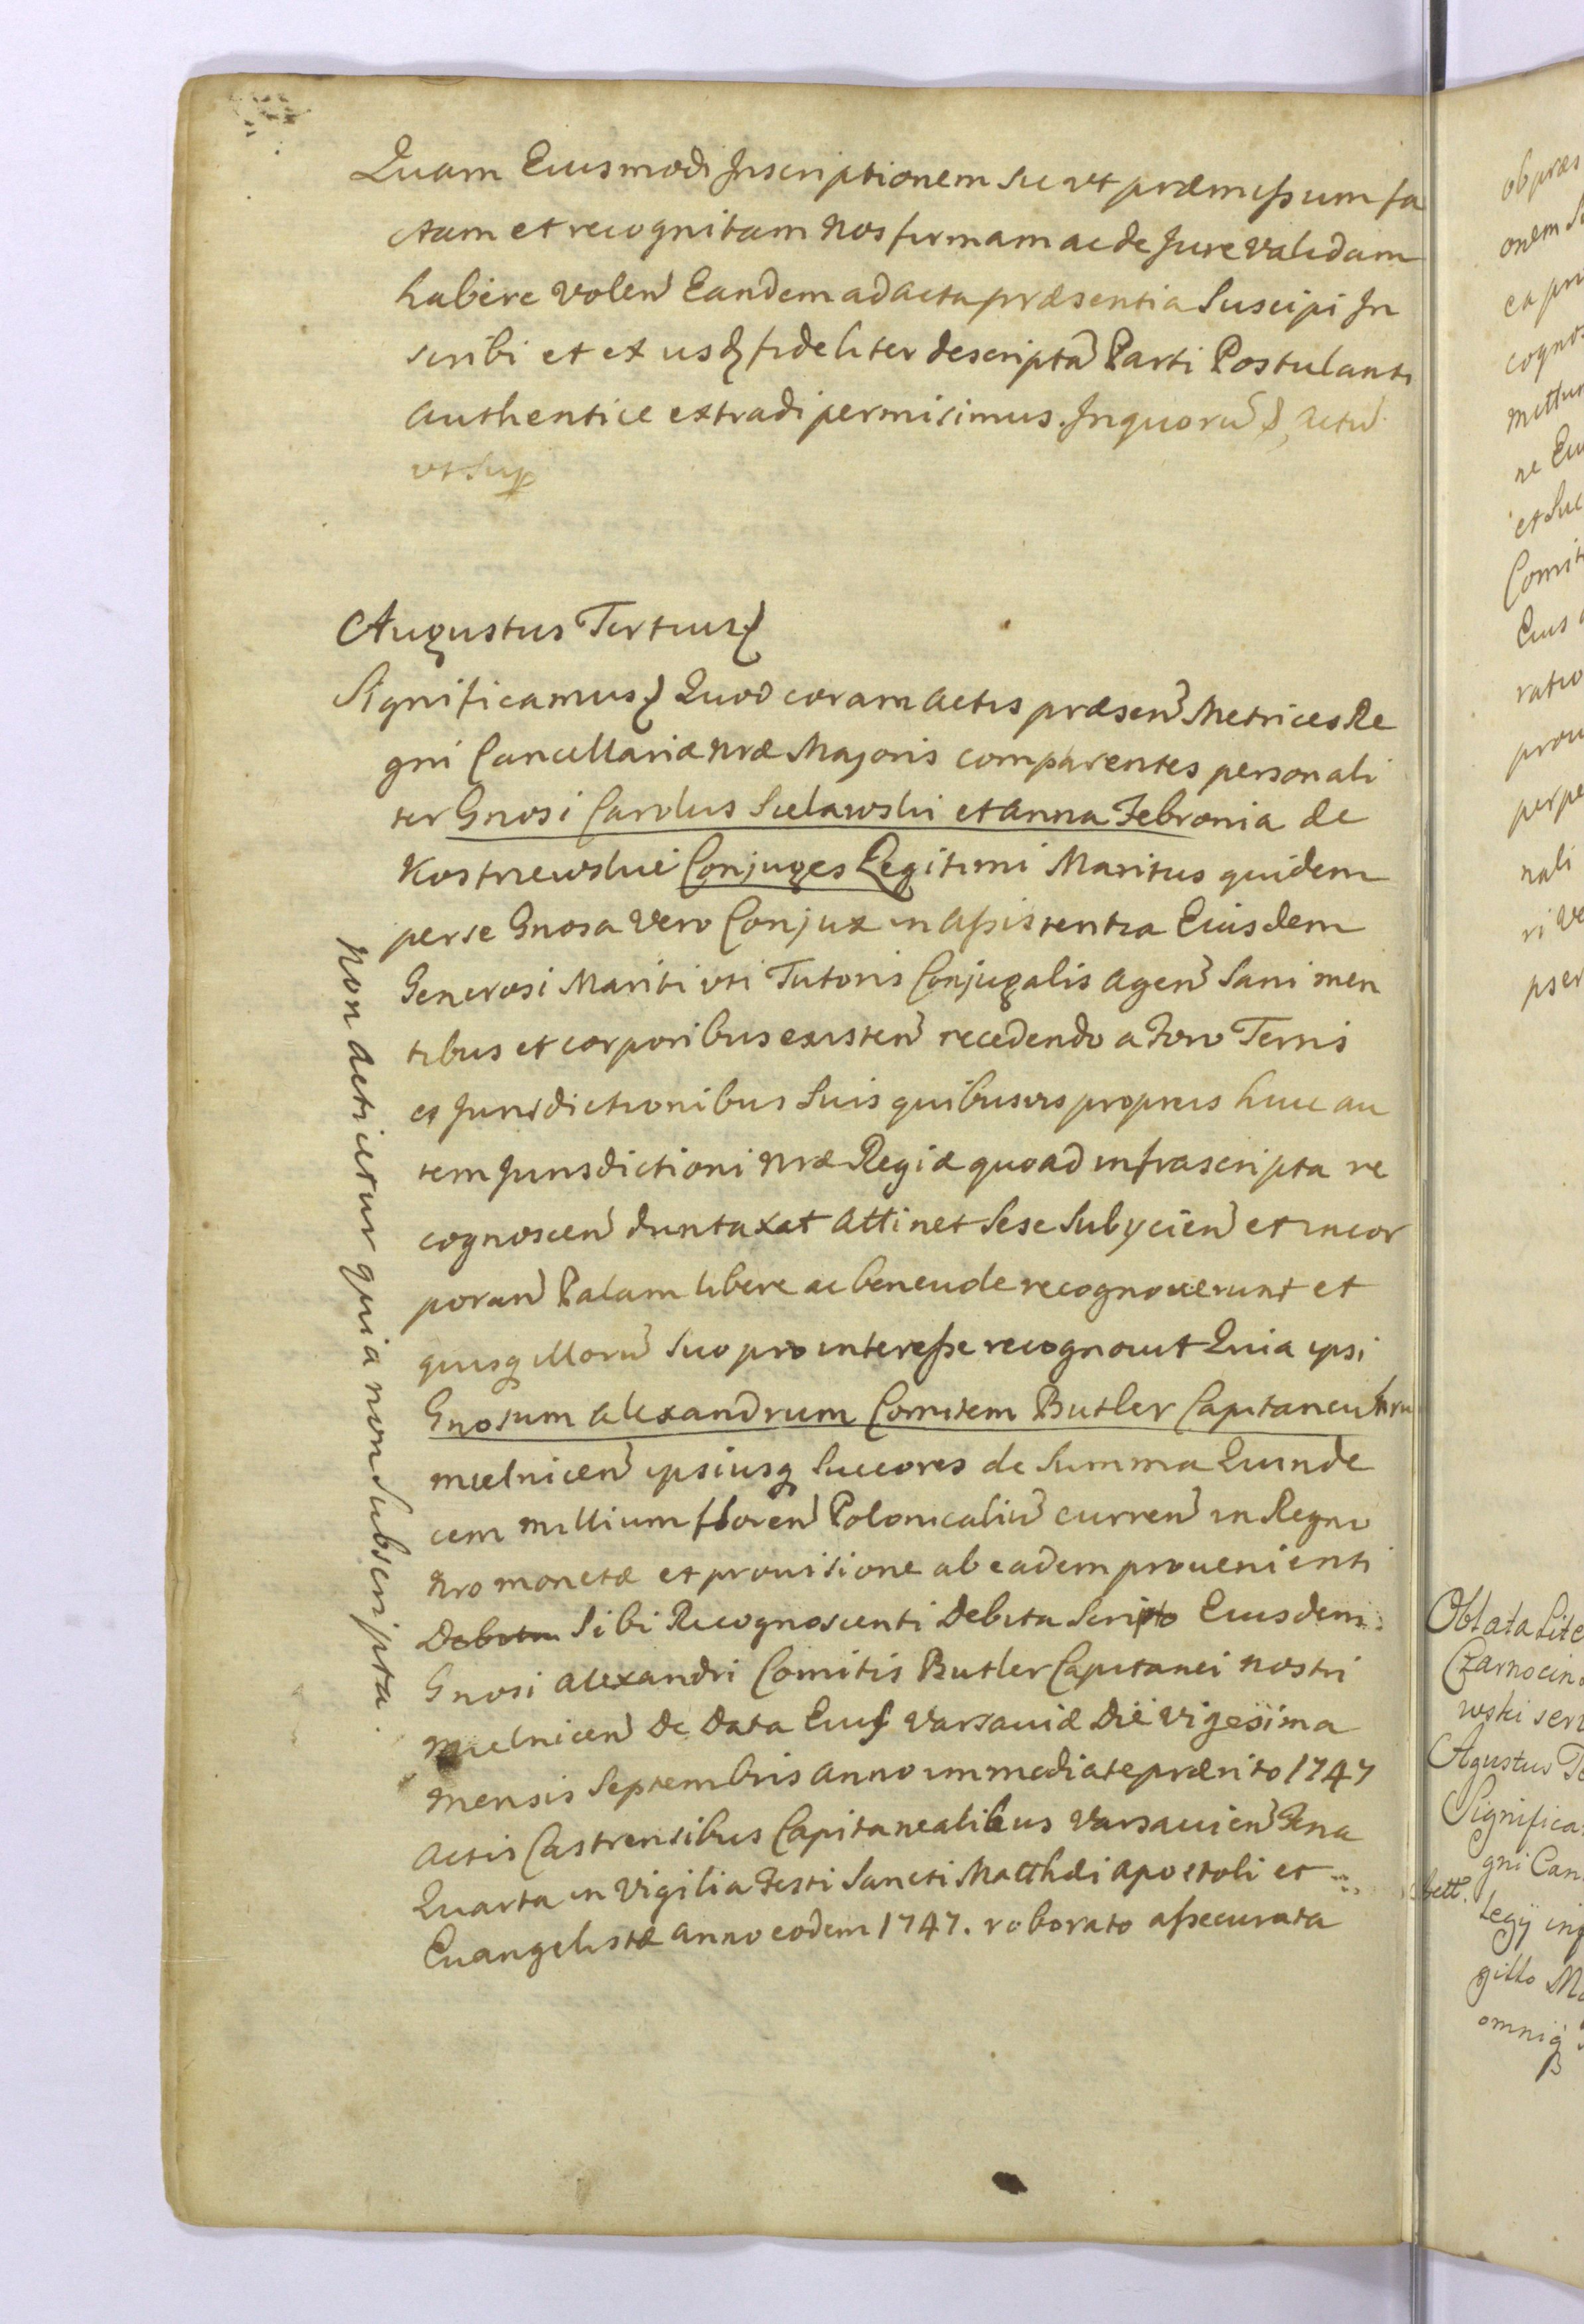 Quam Eiusmodi Inscriptionem sic ut præmissum fa
ctam et recognitam Nos firmam ac de Jure validam
habere volen Eandem ad acta præsentia Suscipi In
scribi et ex iisdẽ fideliter descriptã Parti Postulanti
authentice extradi permisimus. In quorũ &, actũ
ut supr
Augustus Tertius &
Significamus & Quod coram actis præsen Metrices Re
gni Cancellariæ nræ Majoris comparentes personali
ter Gnosi Carolus Sielawski et Anna Febronia de
Kostrzewskie Conjuges Legitimi Maritus quidem
per se Gnosa vero Conjux in assistentia Eiusdem
Generosi Mariti uti Tutoris Conjugalis agen Sani men
tibus et corporibus existen recedendo a Foro Terris
et Jurisdictionibus Suis quibusvis propriis huic au
tem Jurisdictioni nræ Regiæ quoad infrascripta re
cognoscen duntaxat attinet Sese Subijcien et incor
poran Palam libere ac beneuole recognoverunt et
quisq illorũ Suo pro interesse recognouit Quia ipsi
Gnosum Alexandrum Comitem Butler Capitaneũ nru
mielnicen ipsiusq Succores de Summa Quinde
cem millium floren Polonicaliũ curren in Regno
nro monetæ et prouisione ab eadem prouenienti
Debitæ Sibi Recognoscenti Debita Scripto Eiusdem
Gnosi Alexandri Comitis Butler Capitanei nostri
mielnicen De Data Eius Varsauiæ Die vigesima
mensis Septembris anno immediate præterito 1747
actis Castrensibus Capitanealibus Varsauien Feria
Quarta in Vigilia Festi Sancti Matthæi apostoli et
Euangelistæ anno eodem 1747. roborato assecurata
non acticetur quia non Subscripta.
ob præs
onem
ea pri
cogno
mittun
ne Eiu
et Suc
Comit
Eius
ratio
prou
perpe
nali
ri ve
pser
Oblata Lite
Czarnocin
wski serv
Agustus Te
Significa
gni Can
legÿ inf
gillo Ma
omniq